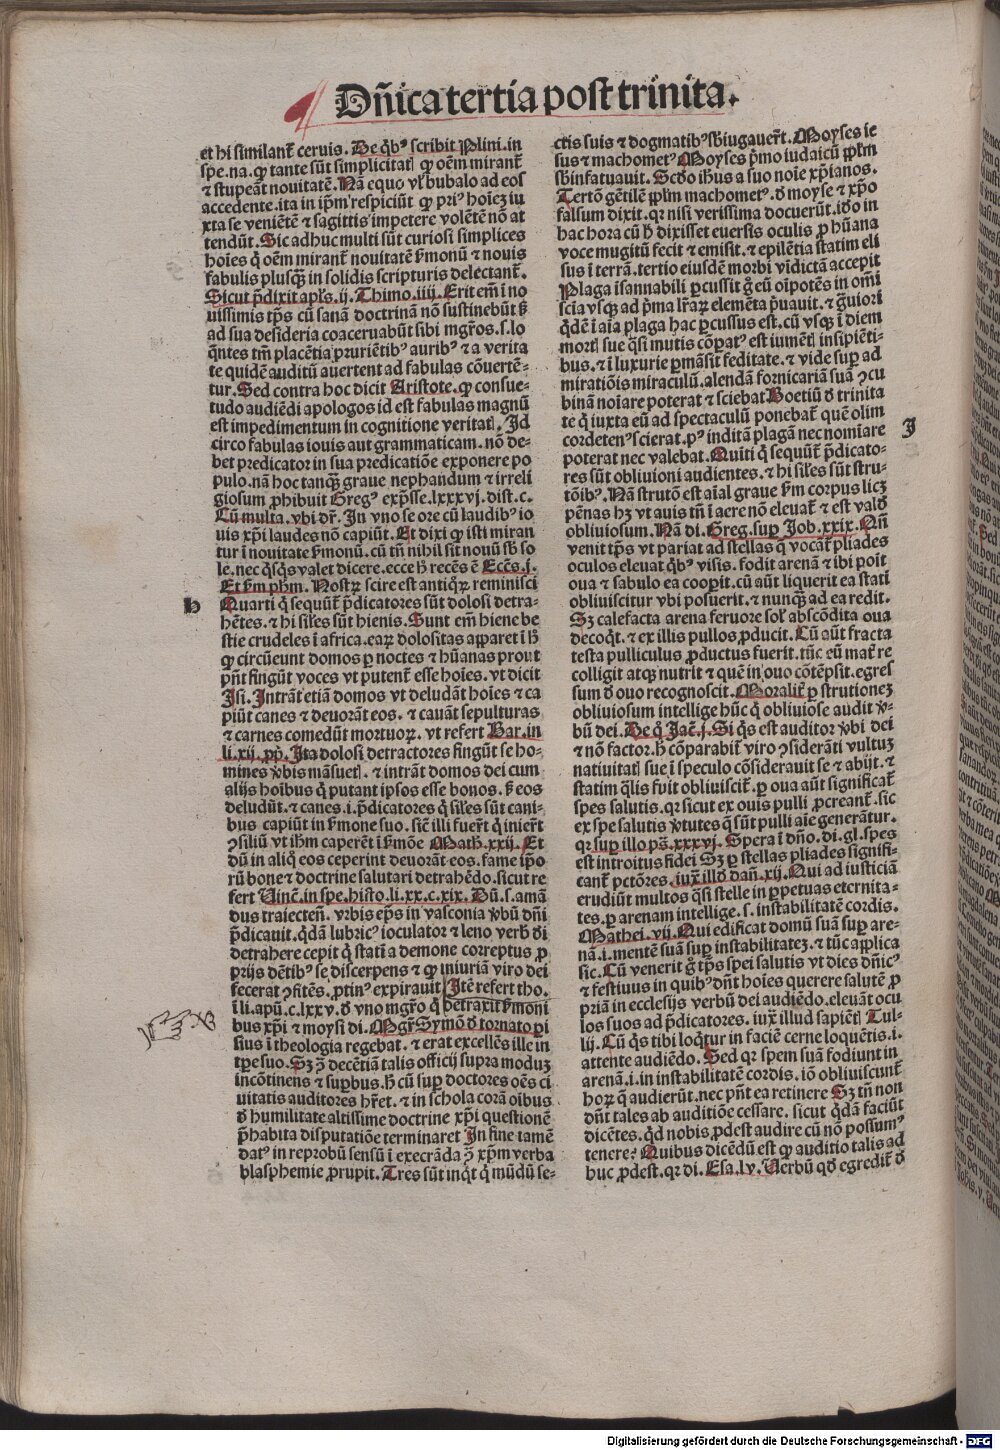 Dñica tertia post trinita.
et hi similant̃ ceruis. De q̃b⁹ scribit Plini. in
spe. na. ꝙ tante sũt simplicitatꝭ ꝙ oẽm mirant̃
⁊ stupeãt nouitatẽ. Nã equo vl̓ bubalo ad eos
accedente. ita in ip̃m respiciũt ꝙ pri⁹ hoĩez iu
xta se veniẽtẽ ⁊ sagittis impetere volẽtẽ nõ at
tendũt. Sic adhuc multi sũt curiosi simplices
hoĩes q̃ oẽm mirant̃ nouitatẽ ẜmonũ ⁊ nouis
fabulis plusq̃ꝫ in solidis scripturis delectant̃.
Sicut p̃dixit apl̓s. ij. Thimo. iiij. Erit em̃ ĩ no
uissimis tp̃s cũ sanã doctrinã nõ sustinebũt ẜ
ad sua desideria coaceruabũt sibi mg̃ros. s. lo
q̃ntes tm̃ placẽtia pruriẽtib⁹ aurib⁹ ⁊ a verita
te quidẽ auditũ auertent ad fabulas cõuertẽ-
tur. Sed contra hoc dicit Aristote. ꝙ consue-
tudo audiẽdi apologos id est fabulas magnũ
est impedimentum in cognitione veritatꝭ. Id
circo fabulas iouis aut grammaticam. nõ de-
bet predicator in sua predicatiõe exponere po
pulo. nã hoc tanq̃ꝫ graue nephandum ⁊ irreli
giosum ꝓhibuit Greg⁹ exp̃sse. lxxxvj. dist. c.
Cũ multa. vbi dr̃. In vno se ore cũ laudib⁹ io
uis xp̃i laudes nõ capiũt. Et dixi ꝙ isti miran
tur ĩ nouitate ẜmonũ. cũ tm̃ nihil sit nouũ sb̓ so
le. nec q̃sq̃s valet dicere. ecce h̓ recẽs ẽ Ecc̃s. j.
Et ẜm ph̃m. Nostrꝝ scire est antiq̃ꝝ reminisci
h
Quarti q̃ sequũt̃ p̃dicatores sũt dolosi detra-
hẽtes. ⁊ hi sil̓es sũt hienis. Sunt em̃ hiene be
stie crudeles ĩ africa. eaꝝ dolositas apparet ĩ h̓
ꝙ circũeunt domos ꝑ noctes ⁊ hũanas prout
pñt fingũt voces vt putent̃ esse hoĩes. vt dicit
Isi. Intrãt etiã domos vt deludãt hoĩes ⁊ ca
piũt canes ⁊ deuorãt eos. ⁊ cauãt sepulturas
⁊ carnes comedũt mortuoꝝ. vt refert Bar. in
li. xij. ꝓp̃. Ita dolosi detractores fingũt se ho-
mines v̓bis mãsuetꝭ. ⁊ intrãt domos dei cum
alijs hoĩbus q̃ putant ipsos esse bonos. ẜ eos
deludũt. ⁊ canes. i. p̃dicatores q̃ sil̓es sũt cani-
bus capiũt in ẜmone suo. sic̃ illi fuer̃t q̃ inier̃t
ꝯsiliũ vt ih̃m caperẽt ĩ ẜmõe Math. xxij. Et
dũ in aliq̃ eos ceperint deuorãt eos. fame ip̃o
rũ bone ⁊ doctrine salutari detrahẽdo. sicut re
fert Uinc̃. in spe. histo. li. xx. c. xix. Bũ. s. amã
dus traiecteñ. vrbis ep̃s in vasconia v̓bũ dñi
p̃dicauit. q̃dã lubric⁹ ioculator ⁊ leno verb̓ di
detrahere cepit q̃ statĩ a demone correptus ꝓ
prijs dẽtib⁹ se discerpens ⁊ ꝙ iniuriã viro dei
fecerat ꝯfitẽs. ꝓtin⁹ expirauit. Itẽ refert tho.
ĩ li. apũ. c. lxxv. ð vno mgr̃o q̃ detraxit ẜmoni
bus xp̃i ⁊ moysi di. Mgr̃ Symõ ð tornato ꝑi
sius ĩ theologia regebat. ⁊ erat excellẽs ille in
tp̃e suo. Sꝫ ꝯ̃ decẽtiã talis officij supra moduꝫ
incõtinens ⁊ suꝑbus. h̓ cũ suꝑ doctores oẽs ci
uitatis auditores hr̃et. ⁊ in schola corã oĩbus
ð humilitate altissime doctrine xp̃i questionẽ
p̃habita disputatiõe terminaret In fine tamẽ
dat⁹ in reprobũ sensũ ĩ execrãda ꝯ̃ xp̃m verba
blasphemie ꝓrupit. Tres sũt inq̃t q̃ mũdũ se-
ctis suis ⁊ dogmatib⁹ sb̓iugauer̃t. Moyses ie
sus ⁊ machomet⁹ Moyses p̃mo iudaicũ ppl̓m
sb̓infatuauit. Scðo ih̓us a suo noĩe xp̃ianos.
Tertõ gẽtilẽ ppl̓m machomet⁹. ð moyse ⁊ xp̃o
falsum dixit. qꝛ nisi verissima docuerũt. iðo in
hac hora cũ h̓ dixisset euersis oculis ꝓ hũana
voce mugitũ fecit ⁊ emisit. ⁊ epilẽtia statim eli
sus ĩ terrã. tertio eiusdẽ morbi vĩdictã accepit
Plaga ĩsannabili ꝑcussit g̃ eũ oĩpotẽs in omĩ
scĩa vsqꝫ ad p̃ma lr̃aꝝ elemẽta p̃uauit. ⁊ g̃uiori
q̃dẽ ĩ aĩa plaga hac ꝑcussus est. cũ vsqꝫ ĩ diem
mortꝭ sue q̃si mutis cõpat⁹ est iumẽtꝭ insipiẽti-
bus. ⁊ ĩ luxurie ꝑmãsit feditate. ⁊ vide suꝑ ad
miratiõis miraculũ. alendã fornicariã suã ꝯcu
binã noĩare poterat ⁊ sciebat Boetiũ ð trinita
te q̃ iuxta eũ ad spectaculũ ponebat̃ quẽ olim
cordeten⁹ scierat. p⁹ inditã plagã nec nomĩare
J
poterat nec valebat. Quiti q̃ sequũt̃ p̃dicato-
res sũt obliuioni audientes. ⁊ hi sil̓es sũt stru-
tõib⁹. Nã strutõ est aĩal graue ẜm corpus licꝫ
pẽnas hꝫ vt auis tm̃ ĩ aere nõ eleuat̃ ⁊ est valð
obliuiosum. Nã di. Greg. suꝑ Job. xxix. Qñ
venit tp̃s vt pariat ad stellas q̃ vocãt̃ pliades
oculos eleuat q̃b⁹ visis. fodit arenã ⁊ ibi poĩt
oua ⁊ sabulo ea cooꝑit. cũ aũt liquerit ea stati
obliuiscitur vbi posuerit. ⁊ nunqꝫ ad ea redit.
Sꝫ calefacta arena feruore sol̓ abscõdita oua
decoq̃t. ⁊ ex illis pullos ꝓducit. Cũ aũt fracta
testa pulliculus ꝓductus fuerit. tũc eũ mat̃ re
colligit atqꝫ nutrit ⁊ quẽ in ouo cõtẽpsit. egres
sum ð ouo recognoscit. Moralit̃ ꝑ strutioneꝫ
obliuiosum intellige hũc q̃ obliuiose audit v̓-
bũ dei. De q̃ Jac̃. j. Si q̃s est auditor v̓bi dei
⁊ nõ factor. h̓ cõparabit̃ viro ꝯsiderãti vultuꝫ
natiuitatꝭ sue ĩ speculo cõsiderauit se ⁊ abijt. ⁊
statim q̃lis fuit obliuiscit̃. ꝑ oua aũt significat̃
spes salutis. qꝛ sicut ex ouis pulli ꝓcreant̃. sic
ex spe salutis v̓tutes q̃ sũt pulli aĩe generãtur.
qꝛ suꝑ illo ps̃. xxxvj. Spera ĩ dño. di. gl. spes
est introitus fidei Sꝫ ꝑ stellas pliades signifi-
cant̃ pctõres. iux̃ illð dañ. xij. Qui ad iusticiã
erudiũt multos q̃si stelle in ꝑpetuas eternita-
tes. ꝑ arenam intellige. s. instabilitatẽ cordis.
Mathei. vij. Qui edificat domũ suã suꝑ are-
nã. i. mentẽ suã suꝑ instabilitateꝫ. ⁊ tũc applica
sic. Cũ venerit g̃ tp̃s spei salutis vt dies dñic⁹
⁊ festiuus in quib⁹ dñt hoĩes querere salutẽ ꝓ
priã in ecclesijs verbũ dei audiẽdo. eleuãt ocu
los suos ad p̃dicatores. iux̃ illud sapiẽtꝭ Tul-
lij. Cũ q̃s tibi loq̃tur in faciẽ cerne loquẽtis. i.
attente audiẽdo. Sed qꝛ spem suã fodiunt in
arenã. i. in instabilitatẽ cordis. iõ obliuiscunt̃
hoꝝ q̃ audierũt. nec pñt ea retinere Sꝫ tñ non
dñt tales ab auditiõe cessare. sicut q̃dã faciũt
dicẽtes. q̃d nobis ꝓdest audire cũ nõ possum⁹
tenere? Quibus dicẽdũ est ꝙ auditio talis ad
huc ꝓdest. qꝛ di. Esa. lv. Uerbũ qð egredit̃ ð
Digitalisierung gefördert durch die Deutsche Forschungsgemeinschaft - DFG